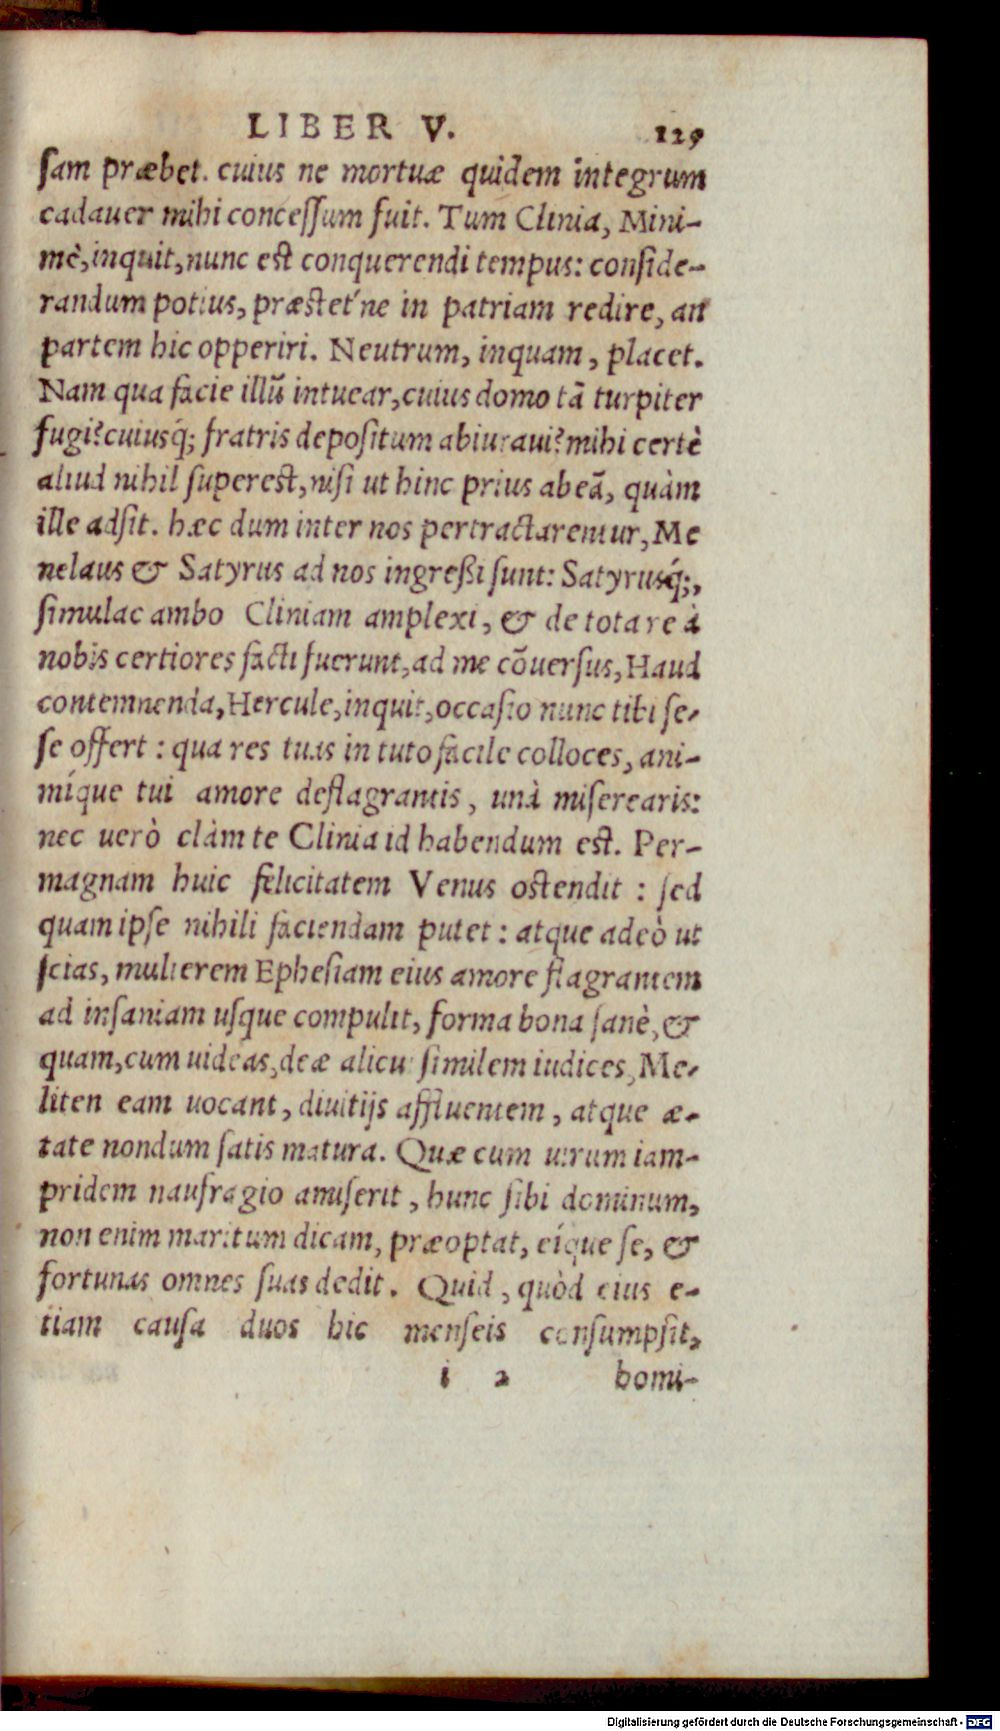 LIBER V. 129
sam præbet. cuius ne mortuæ quidem integrum
cadauer mihi concessum fuit. Tum Clinia, Mini-
mè, inquit, nunc est conquerendi tempus: conside-
randum potius, præstet'ne in patriam redire, an
partem hic opperiri. Neutrum, inquam, placet.
Nam qua facie illũ intuear, cuius domo tã turpiter
fugi? cuiusq́; fratris depositum abiuraui? mihi certè
aliud nihil superest, nisi ut hinc prius abeã, quàm
ille adsit. hæc dum inter nos pertractarentur, Me
nelaus & Satyrus ad nos ingreßi sunt: Satyrusq́;,
simulac ambo Cliniam amplexi, & de tota re à
nobis certiores facti fuerunt, ad me cõuersus, Haud
contemnenda, Hercule, inquit, occasio nunc tibi se-
se offert: qua res tuas in tuto facile colloces, ani-
míque tui amore deflagrantis, unà miserearis:
nec uerò clàm te Clinia id habendum est. Per-
magnam huic felicitatem Venus ostendit: sed
quam ipse nihili faciendam putet: atque adeò ut
scias, mulierem Ephesiam eius amore flagrantem
ad insaniam usque compulit, forma bona sanè, &
quam, cum uideas, deæ alicui similem iudices, Me-
liten eam uocant, diuitijs affluentem, atque æ-
tate nondum satis matura. Quæ cum uirum iam-
pridem naufragio amiserit, hunc sibi dominum,
non enim maritum dicam, præoptat, eíque se, &
fortunas omnes suas dedit. Quid, quòd eius e-
tiam causa duos hic menseis consumpsit,
i 2 homi-
Digitalisierung gefördert durch die Deutsche Forschungsgemeinschaft - DFG